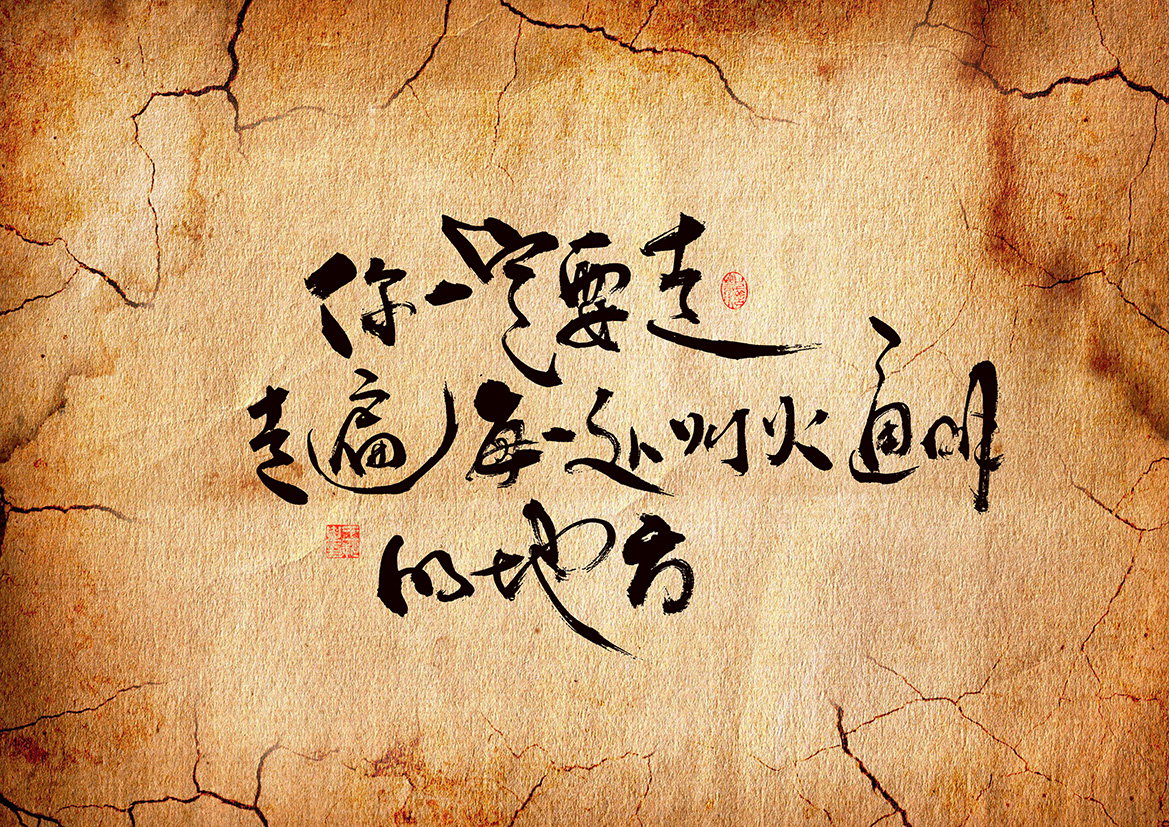 你一定要走
走遍每一处灯火通明
的地方